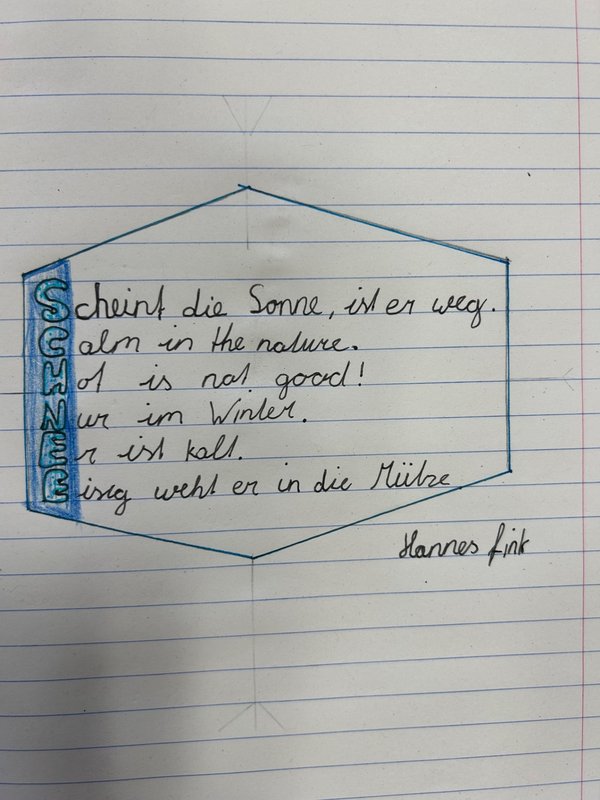 Scheint die Sonne, ist er weg.
Calm in the nature.
Hot is not good!
Nur im Winter.
Er ist kalt.
Eisig weht er in die Mütze
Hannes Fink